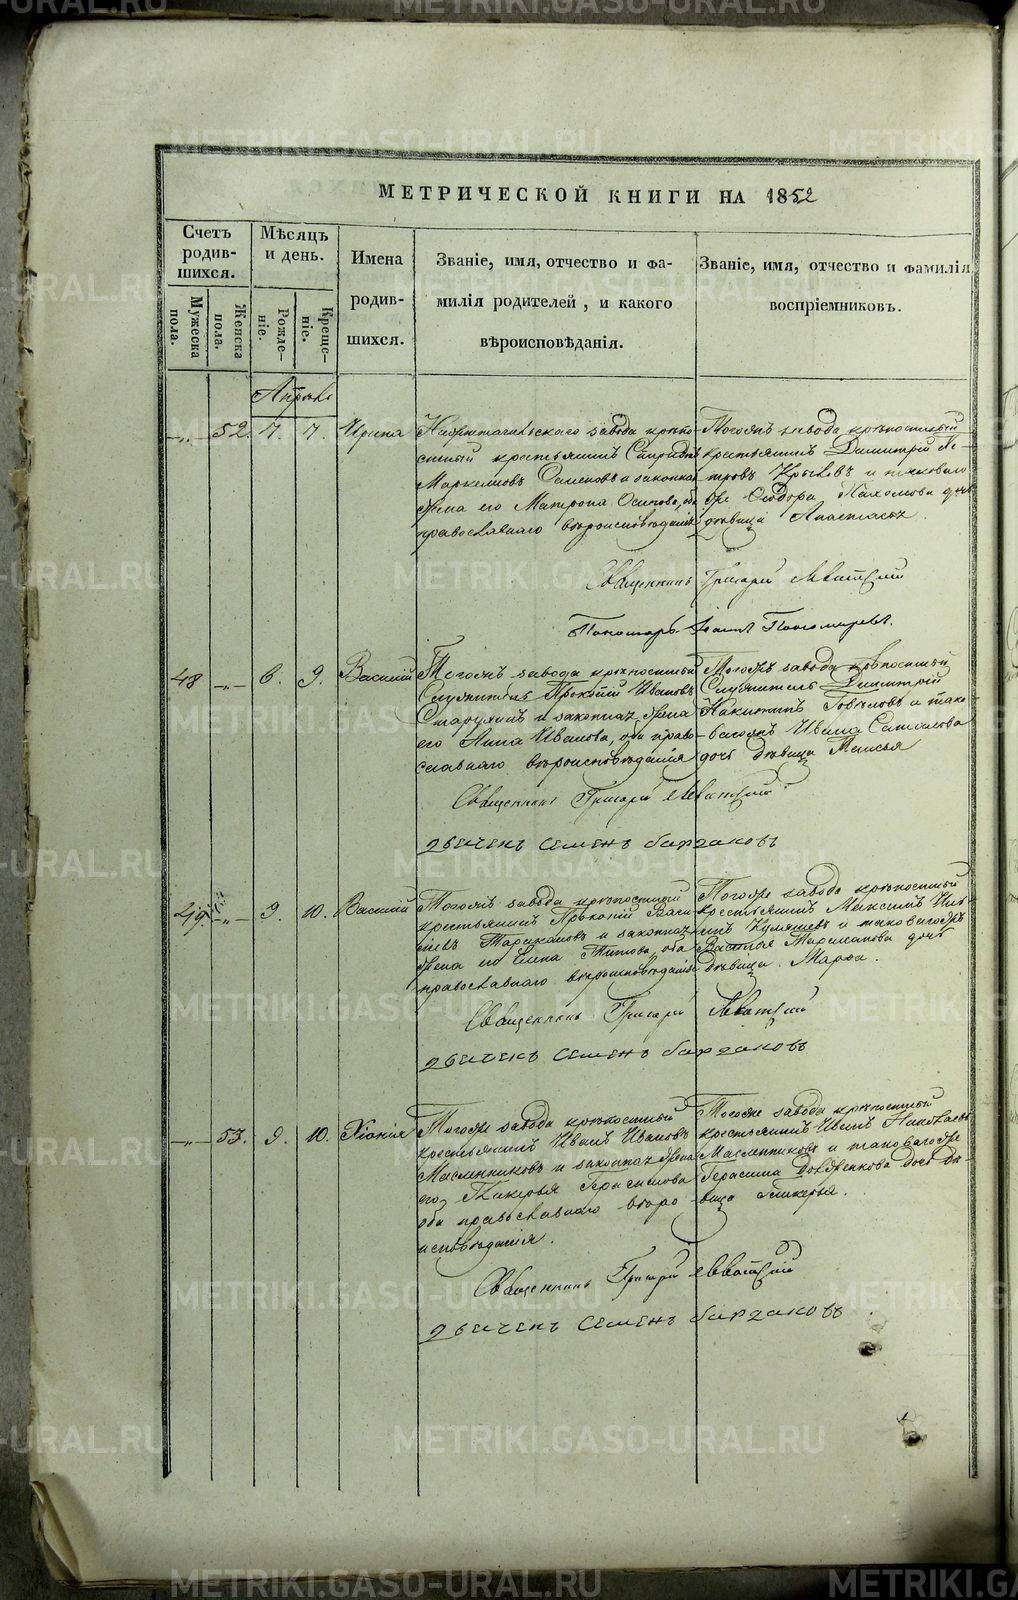 МЕТРИЧЕСКОЙ КНИГИ НА 1852
Счетъ родив-шихся.
Мужеска пола.
Женска пола.
Мѣсяцъ и день.
Рожде-ніе.
Креще-ніе.
Имена родив-шихся.
Званіе, имя, отчество и фа-
милія родителей, и какого
вѣроисповѣданія.
Званіе, имя, отчество и фамилія
воспріемниковъ.
Апрѣль
-"- 52. 7. 7. Ирина
завода крѣпо-
стный крестьянинъ
Маркеловъ Семеновъ и законная
жена его Матрона Осипова, оба
православнаго вѣроисповѣданія
Тогожъ завода крѣпостный
крестьянинъ Димитрій Пе-
тровъ и таковаго
же Сидора Пахомова дочь
дѣвица
Священникъ Григорій
Пономарь Іоаннъ Пономаревъ.
48 -"- 6. 9. Василій
Тогожъ завода крѣпостный
Служитель Прокопій Ивановъ
и законная жена
его Анна Иванова, оба право-
славнаго вѣроисповѣданія
Тогожъ завода крѣпостный
Служитель Димитрій
Никитинъ и тако-
ваго жъ Ивана
дочь дѣвица Таисья
Священникъ Григорій
Семенъ
49. -"- 9. 10. Василій
Тогожъ завода крѣпостный
крестьянинъ Прокопій Васи-
ліевъ и законная
жена его Елена Титова, оба
православнаго вѣроисповѣданія
Тогоже завода крѣпостный
крестьянинъ Максимъ
и таковаго жъ
дочь
дѣвица Марѳа.
Священникъ Григорій
Семенъ
-"- 53. 9. 10. Хіонія
Тогоже завода крѣпостный
крестьянинъ Иванъ Ивановъ
Масленниковъ и законная жена
его Гликерья Герасимова
оба православнаго вѣро-
исповѣданія.
Тогоже завода крѣпостный
крестьянинъ Иванъ Николаевъ
Масленниковъ и таковаго же
Герасима дочь дѣ-
вица Гликерья.
Священникъ Григорій
Семенъ
METRIKI.GASO-URAL.RU